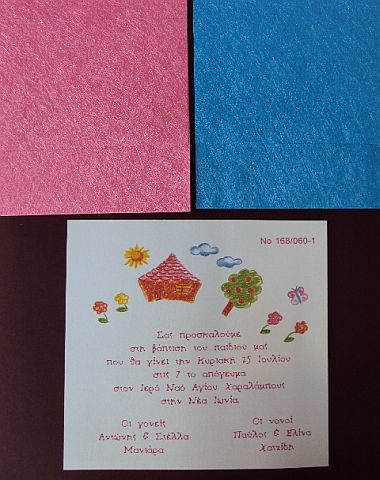 No 168/060-1
Σας προσκαλούμε
στη βάπτιση του παιδιού μας
που θα γίνει την Κυριακή 15 Ιουλίου
στις 7 το απόγευμα
στον Ιερό Ναό Αγίου Χαραλάμπους
στην Νέα Ιωνία
Οι γονείς
Αντώνης & Στέλλα
Μανιάρα
Οι νονοί
Παύλος & Ελίνα
Χατζίδη